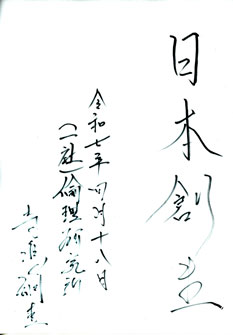 日本創立
令和七年四月十八日
(一社)倫理研究所